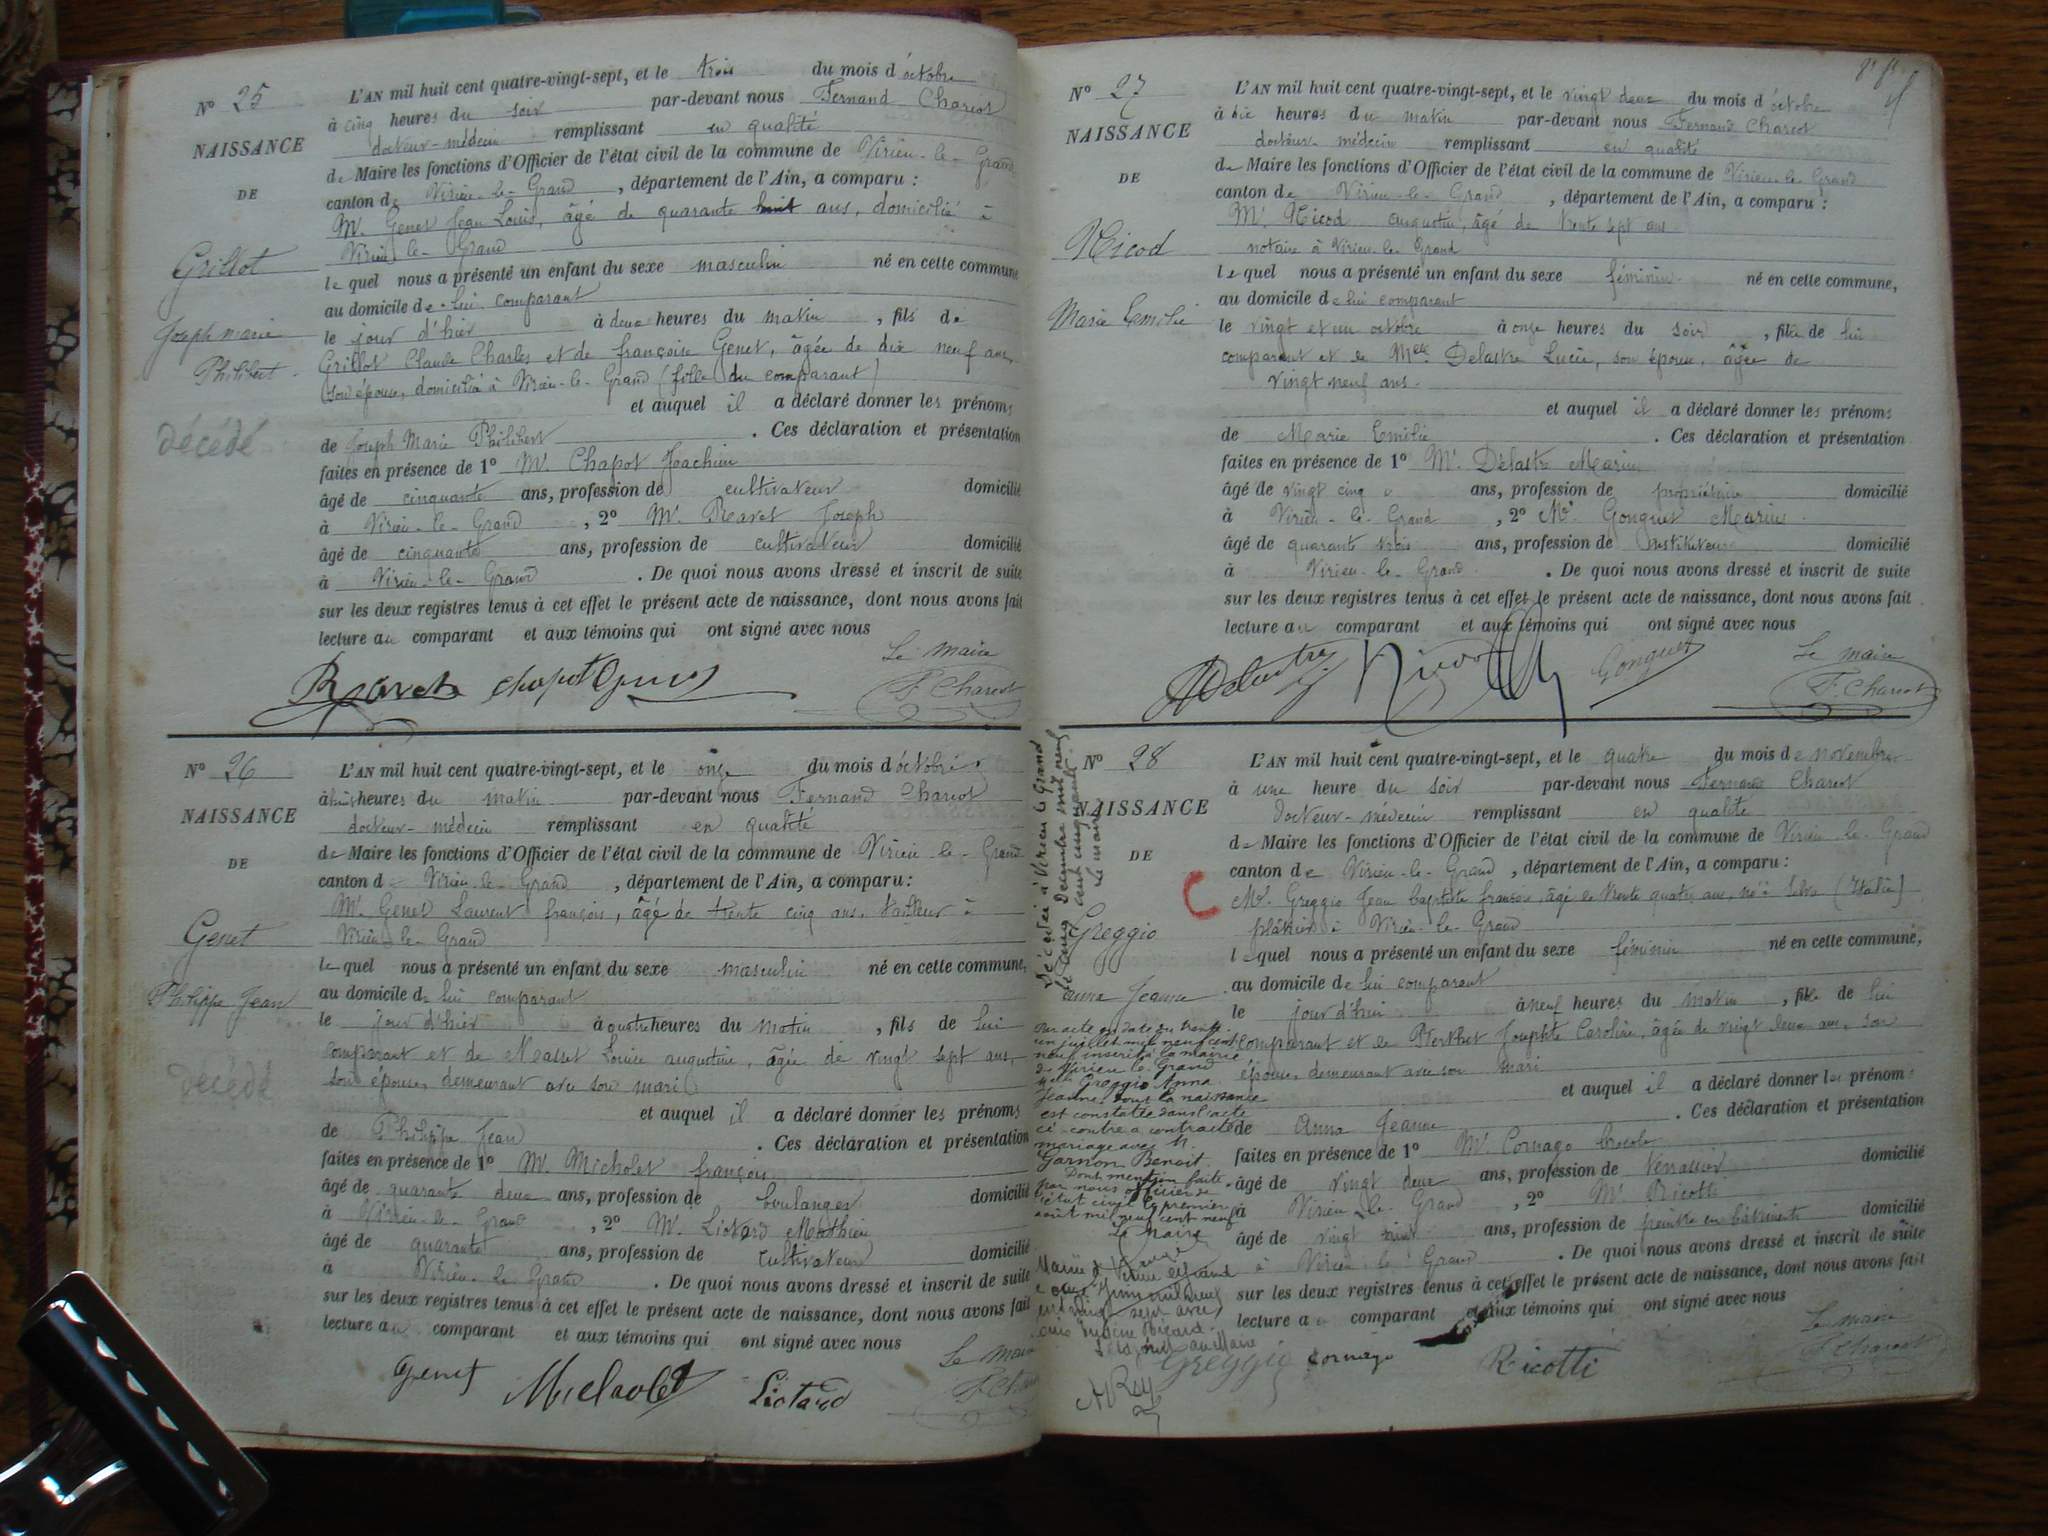 N° 25
NAISSANCE
DE
Grillot
Joseph marie
Philibert
décédé
L'AN mil huit cent quatre-vingt-sept, et le trois du mois d'octobre
à cinq heures du soir par-devant nous Fernand Charcot
docteur-médecin remplissant en qualité
de Maire les fonctions d'Officier de l'état civil de la commune de Virieu-le-Grand
canton de Virieu-le-Grand, département de l'Ain, a comparu :
Mr. Genet Jean Louis, âgé de quarante huit ans, domicilié à
Virieu-le-Grand
lequel nous a présenté un enfant du sexe masculin né en cette commune
au domicile de lui comparant
le jour d'hier à deux heures du matin, fils de
Grillot Claude Charles et de françoise Genet, âgée de dix neuf ans,
son épouse, domicilié à Virieu-le-Grand (fille du comparant)
et auquel il a déclaré donner les prénoms
de Joseph Marie Philibert. Ces déclaration et présentation
faites en présence de 1° Mr. Chapot Joachim
âgé de cinquante ans, profession de cultivateur domicilié
à Virieu-le-Grand, 2° Mr. Ravet Joseph
âgé de cinquante ans, profession de cultivateur domicilié
à Virieu-le-Grand. De quoi nous avons dressé et inscrit de suite
sur les deux registres tenus à cet effet le présent acte de naissance, dont nous avons fait
lecture au comparant et aux témoins qui ont signé avec nous
Le maire
Ravet chapot F. Charcot
N° 26
NAISSANCE
DE
Genet
Philippe Jean
Décédé
L'AN mil huit cent quatre-vingt-sept, et le onze du mois d'octobre
à huit heures du matin par-devant nous Fernand Charcot
docteur-médecin remplissant en qualité
de Maire les fonctions d'Officier de l'état civil de la commune de Virieu-le-Grand
canton de Virieu-le-Grand, département de l'Ain, a comparu :
Mr. Genet Laurent françois, âgé de trente cinq ans, tailleur à
Virieu-le-Grand
lequel nous a présenté un enfant du sexe masculin né en cette commune,
au domicile de lui comparant
le jour d'hier à quatre heures du matin, fils de lui
comparant et de Masset Louise augustine, âgée de vingt sept ans,
son épouse, demeurant avec son mari
et auquel il a déclaré donner les prénoms
de Philippe Jean. Ces déclaration et présentation
faites en présence de 1° Mr. Micholet françois
âgé de quarante deux ans, profession de boulanger domicilié
à Virieu-le-Grand, 2° Mr. Liotard Mathieu
âgé de quarante ans, profession de cultivateur domicilié
à Virieu-le-Grand. De quoi nous avons dressé et inscrit de suite
sur les deux registres tenus à cet effet le présent acte de naissance, dont nous avons fait
lecture au comparant et aux témoins qui ont signé avec nous
Le maire
Genet Micholet Liotard
N° 27
NAISSANCE
DE
Nicod
Marie Emilie
L'AN mil huit cent quatre-vingt-sept, et le vingt deux du mois d'octobre
à dix heures du matin par-devant nous Fernand Charcot
docteur-médecin remplissant en qualité
de Maire les fonctions d'Officier de l'état civil de la commune de Virieu-le-Grand
canton de Virieu-le-Grand, département de l'Ain, a comparu :
Mr. Nicod augustin, âgé de trente sept ans
notaire à Virieu-le-Grand
lequel nous a présenté un enfant du sexe féminin né en cette commune,
au domicile de lui comparant
le vingt et un octobre à onze heures du soir, fille de lui
comparant et de Delastre Lucie, son épouse, âgée de
vingt neuf ans.
et auquel il a déclaré donner les prénoms
de Marie Emilie. Ces déclaration et présentation
faites en présence de 1° Mr. Delastre Marius
âgé de vingt cinq ans, profession de propriétaire domicilié
à Virieu-le-Grand, 2° Mr. Gonguet Marius
âgé de quarante trois ans, profession de instituteur domicilié
à Virieu-le-Grand. De quoi nous avons dressé et inscrit de suite
sur les deux registres tenus à cet effet le présent acte de naissance, dont nous avons fait
lecture au comparant et aux témoins qui ont signé avec nous
Le maire
Delastre Nicod Gonguet F. Charcot
N° 28
NAISSANCE
DE
Greggio
anna Jeanne
Décédée à Virieu le Grand
le cinq Décembre mil neuf
cent cinquante
Le maire
Par acte en date du trente
un juillet mil neuf cent
neuf inscrit à la mairie
de Virieu le Grand
Melle Greggio Anna
Jeanne, dont la naissance
est constatée dans l'acte
ci-contre a contracté
mariage avec M.
Garnon Benoit.
Dont mention faite
par nous officier de
l'état civil le premier
août mil neuf cent neuf
Le Maire
L'AN mil huit cent quatre-vingt-sept, et le quatre du mois de novembre
à une heure du soir par-devant nous Fernand Charcot
Docteur-médecin remplissant en qualité
de Maire les fonctions d'Officier de l'état civil de la commune de Virieu-le-Grand
canton de Virieu-le-Grand, département de l'Ain, a comparu :
Mr. Greggio Jean baptiste françois, âgé de trente quatre ans, né à (Italie)
plâtrier à Virieu-le-Grand
lequel nous a présenté un enfant du sexe féminin né en cette commune,
au domicile de lui comparant
le jour d'hui à neuf heures du matin, fille de lui
comparant et de Josephte Caroline, âgée de vingt deux ans, son
épouse, demeurant avec son mari
et auquel il a déclaré donner les prénoms
de Anna Jeanne. Ces déclaration et présentation
faites en présence de 1° Mr. Cornago
âgé de vingt deux ans, profession de terrassier domicilié
à Virieu-le-Grand, 2° Mr. Ricotti
âgé de vingt huit ans, profession de peintre en bâtiments domicilié
à Virieu-le-Grand. De quoi nous avons dressé et inscrit de suite
sur les deux registres tenus à cet effet le présent acte de naissance, dont nous avons fait
lecture au comparant et aux témoins qui ont signé avec nous
Le maire
Greggio Cornago Ricotti F. Charcot